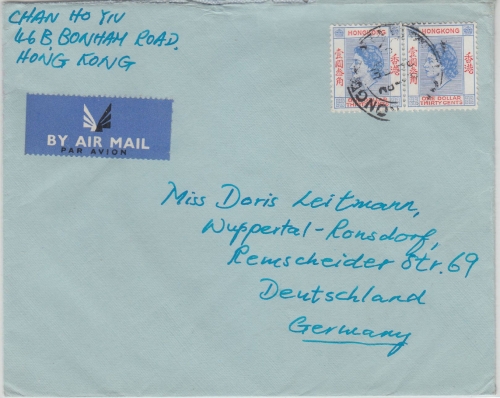 CHAN HO YIU
46B BONHAM ROAD,
HONG KONG
BY AIR MAIL
PAR AVION
HONGKONG
壹圓叁角
香港
HONGKONG
壹圓叁角
香港
ONE DOLLAR
THIRTY CENTS
Miss Doris Leitmann,
Wuppertal-Ronsdorf,
Remscheider Str. 69
Deutschland
Germany